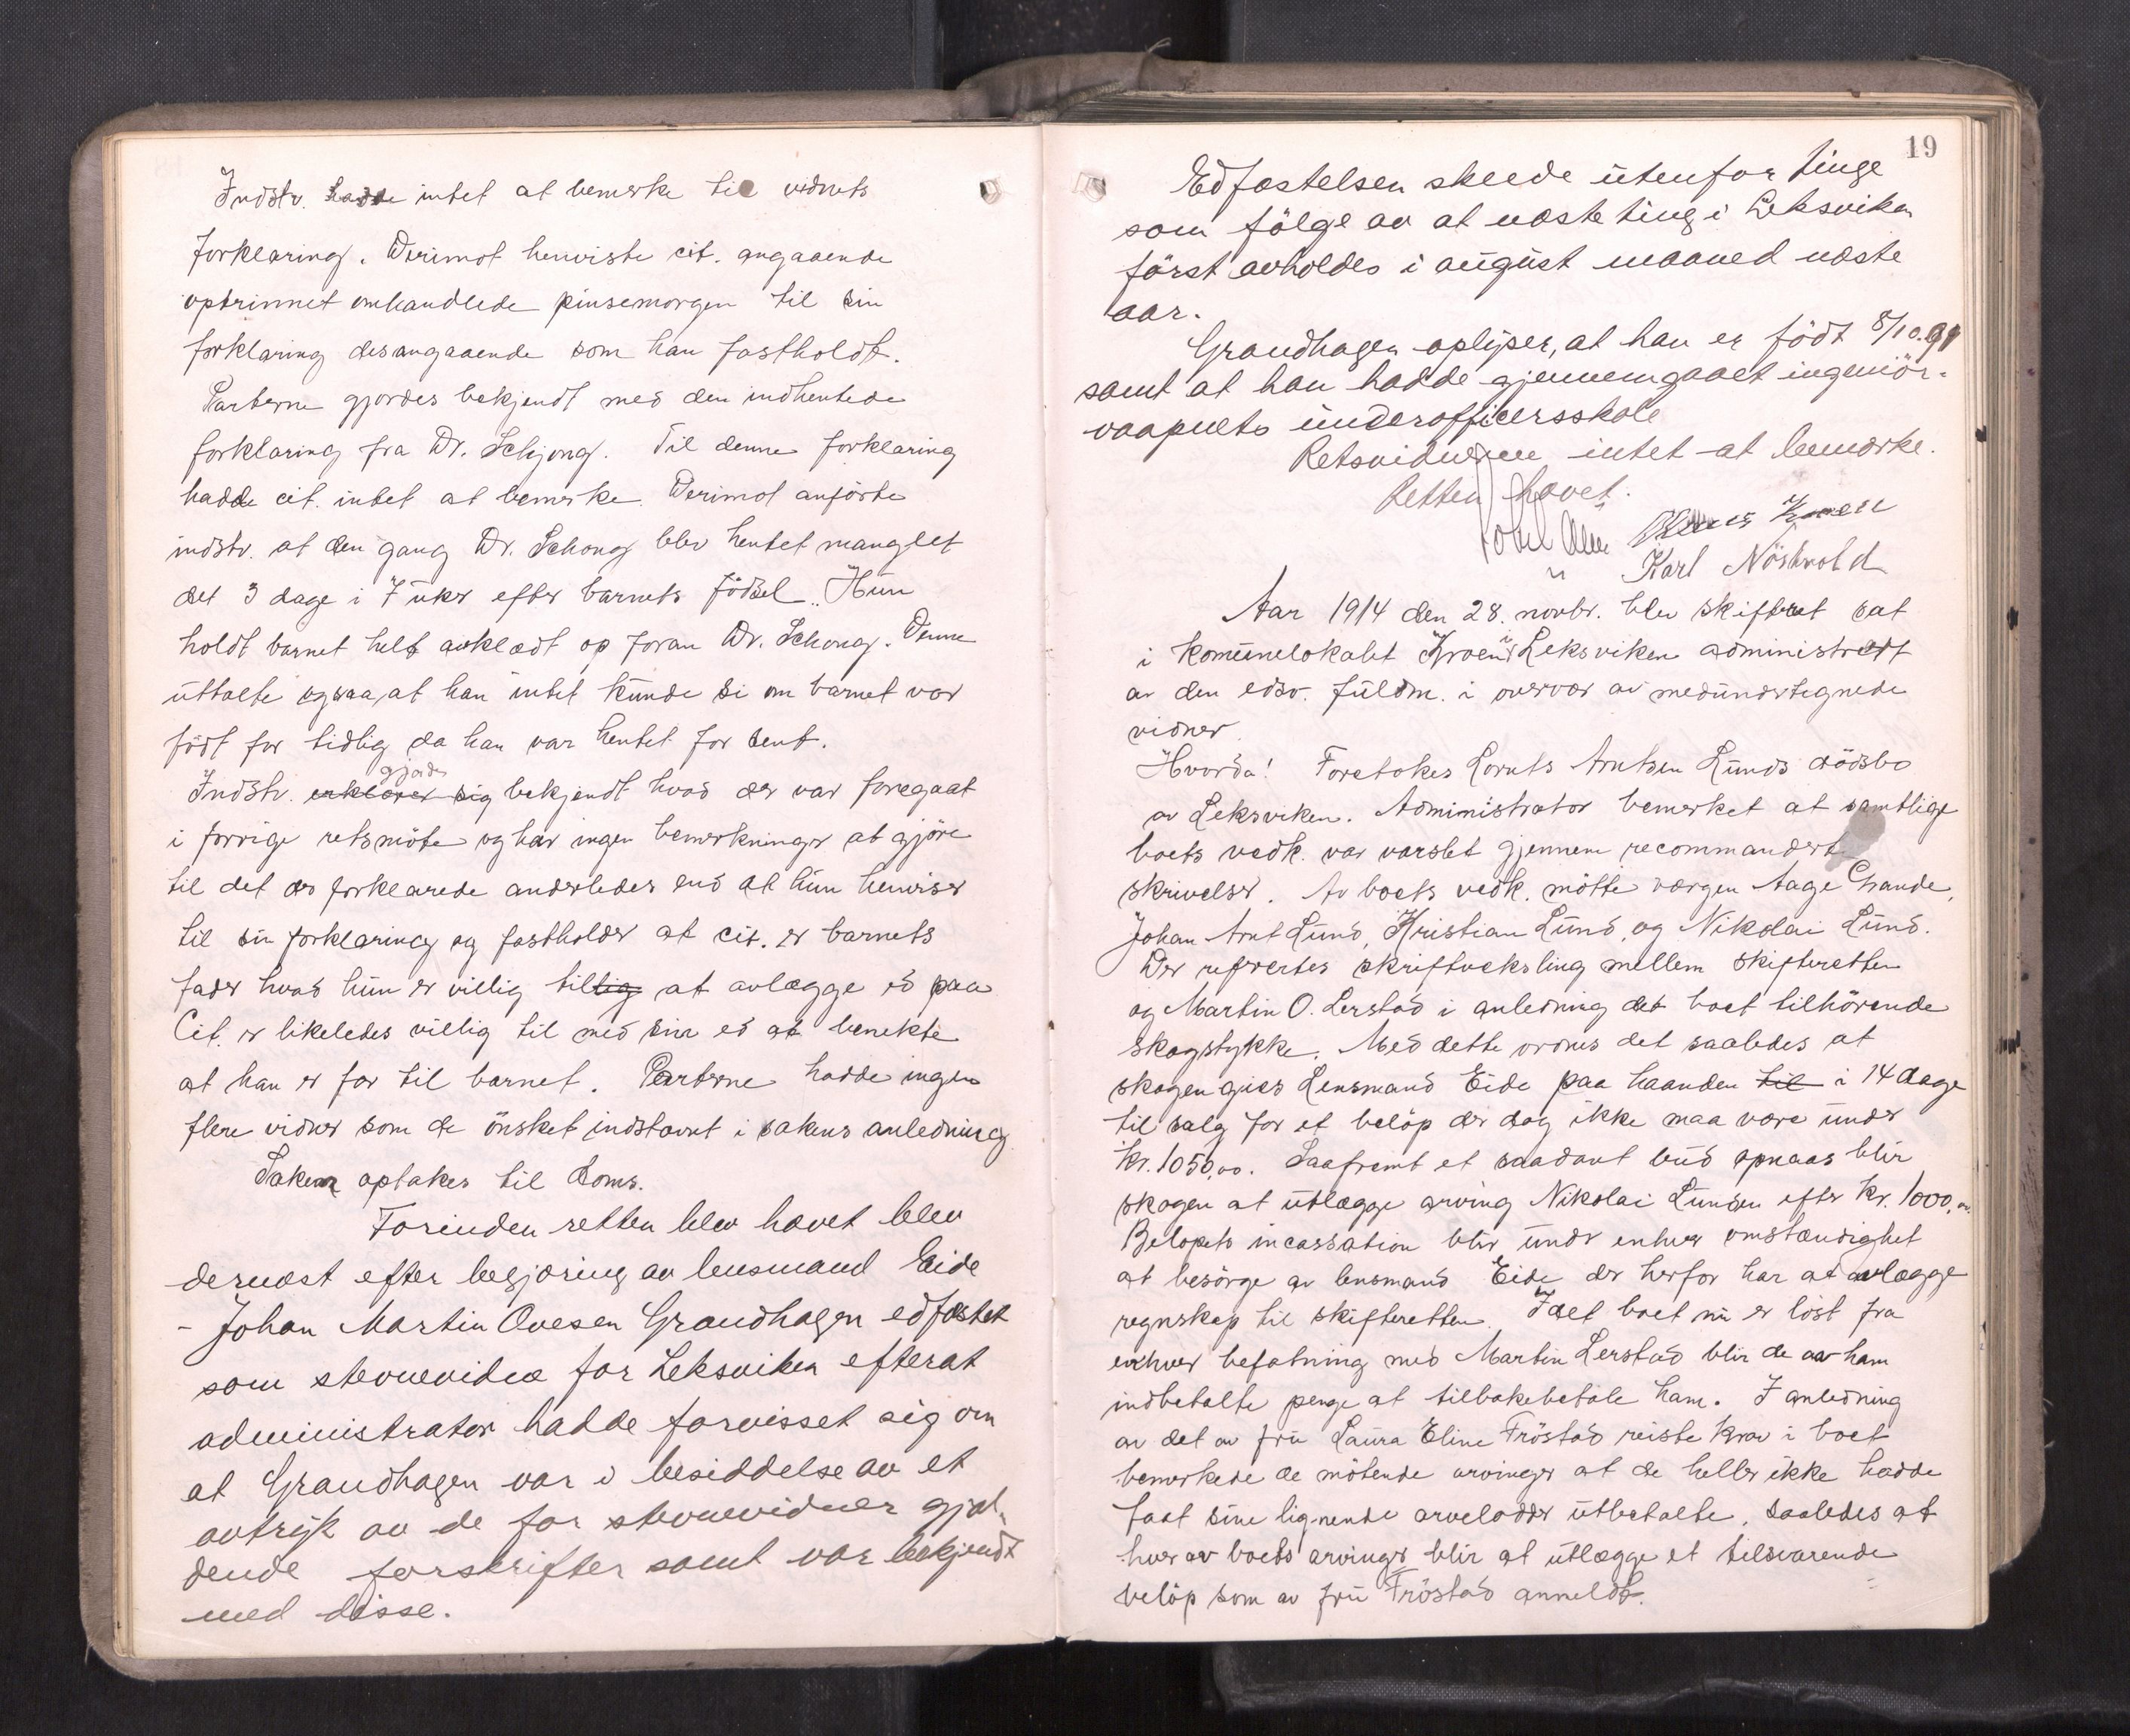 Indstv. hadde intet at bemerke til vidnets
forklaring. Derimot henviste cit. angaaende
optrinnet omhandlede pinsemorgen til sin
forklaring desangaaende som han fastholdt.
Parterne gjordes bekjendt med den indhentede
forklaring fra Dr. Schjong. Til denne forklaring
hadde cit. intet at bemerke. Derimot anförte
indstv. at den gang Dr. Schong blev hentet manglet
det 3 dage i 7 uker efter barnets födsel. Hun
holdt barnet helt avklædt op foran Dr. Schong. Denne
uttalte ogsaa, at han intet kunde si om barnet var
födt for tidlig da han var hentet for sent.
Indstv. erklærer sig gjordes bekjendt hvad der var foregaat
i forrige retsmöte og har ingen bemerkninger at gjöre
til det der forklarede anderledes end at hun henviser
til sin forklaring og fastholder at cit. er barnets
fader hvad hun er villig tillig at avlægge ed paa
Cit. er likeledes villig til med sin ed at benekte
at han er far til barnet. Parterne hadde ingen
flere vidner som de önsket indstevnt i sakens anledning
Saken optakes til doms.
Forinden retten blev hævet blev
dernæst efter begjæring av lensmand Eide
- Johan Martin Ovesen Grandhagen edfæstet
som stevnevidne for Leksviken efterat
administrator hadde forvisset sig om
at Grandhagen var i besiddelse av et
avtryk av de for stevnevidner gjæl-
dende forskrifter samt var bekjendt
med disse.
19
Edfæstelsen skeede utenfor tinge
som fölge av at næste ting i Leksviken
först avholdes i august maaned næste
aar.
Grandhagen oplyser, at han er födt 8/10.91
samt at han hadde gjennemgaaet ingeniör-
vaapnets underofficersskole
Retsvidnerne intet at bemærke.
Retten hævet.
Karl Nöstvold
Aar 1914 den 28. novbr. blev skifteret sat
i komunelokalet Kroen i Leksviken administrert
av den edsv. fuldm. i overvær av medundertegnede
vidner.
Hvorda! Foretokes Lornts Arntsen Lunds dödsbo
av Leksviken. Administrator bemerket at samtlige
boets vedk. var varslet gjennem recommandert
skrivelser. Av boets vedk. mötte værgen Aage Chande,
Johan Arnt Lund, Kristian Lund, og Nikolai Lund.
Der refrertes skriftveksling mellem skifteretten
og Martin O. Lerstad i anledning det boet tilhörende
skogstykke. Med dette ordnes det saaledes at
skogen gives Lensmand Eide paa haanden til i 14 dage
til salg for et belöp der dog ikke maa være under
kr. 1050,00. Saafremt et saadant bud opnaas blir
skogen at utlægge arving Nikolai Lunden efter kr. 1000,00.
Belöpets incassation blir under enhver omstændighet
at besörge av lensmand Eide der herfor har at avlægge
regnskap til skifteretten. Idet boet nu er löst fra
enhver befatning med Martin Lerstad blir de av ham
indbetalte penge at tilbakebetale ham. I anledning
av det av fru Laura Eline Fröstad reiste krav i boet
bemerkede de mötende arvinger at de heller ikke hadde
faat sine lignende arvelodder utbetalte, saaledes at
hver av boets arvinger blir at utlægge et tilsvarende
belöp som av fru Fröstad anmeldt.